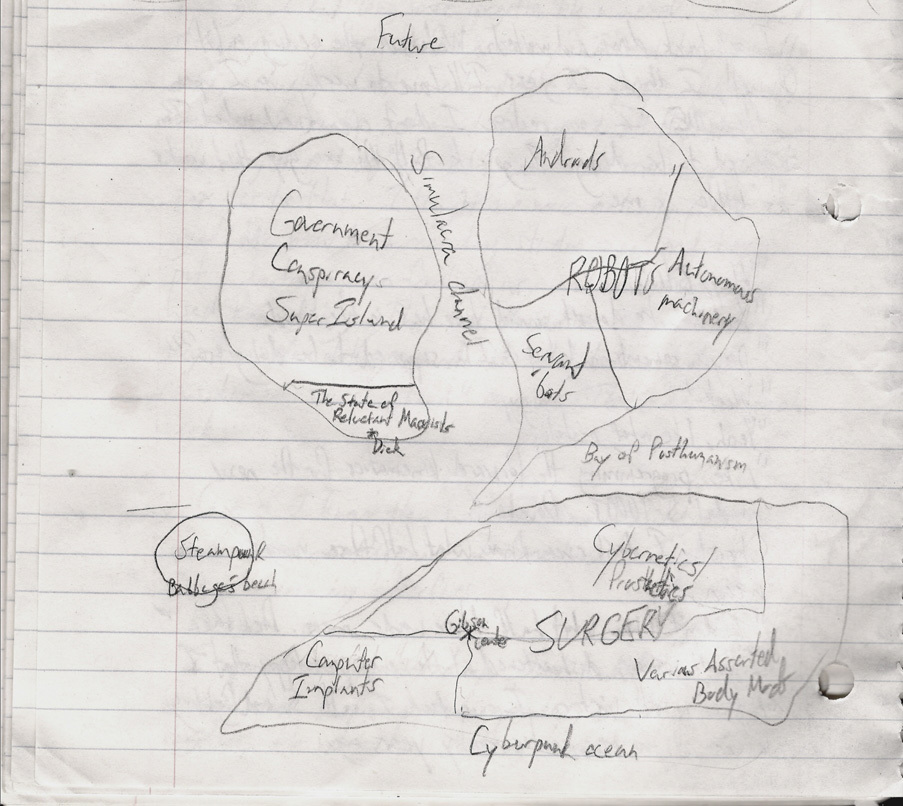 Future
Androids
Simulacra channel
Government
Conspiracy
Super Island
ROBOTS
Autonomous
machinery
Servant
'bots
The State of
Reluctant
* Dick
Bay of Posthumanism
Steampunk
Babbage's beach
Cybernetics/
Prosthetics
Gibson
center
SURGERY
Computer
Implants
Various Assorted
Body Mods
Cyberpunk ocean